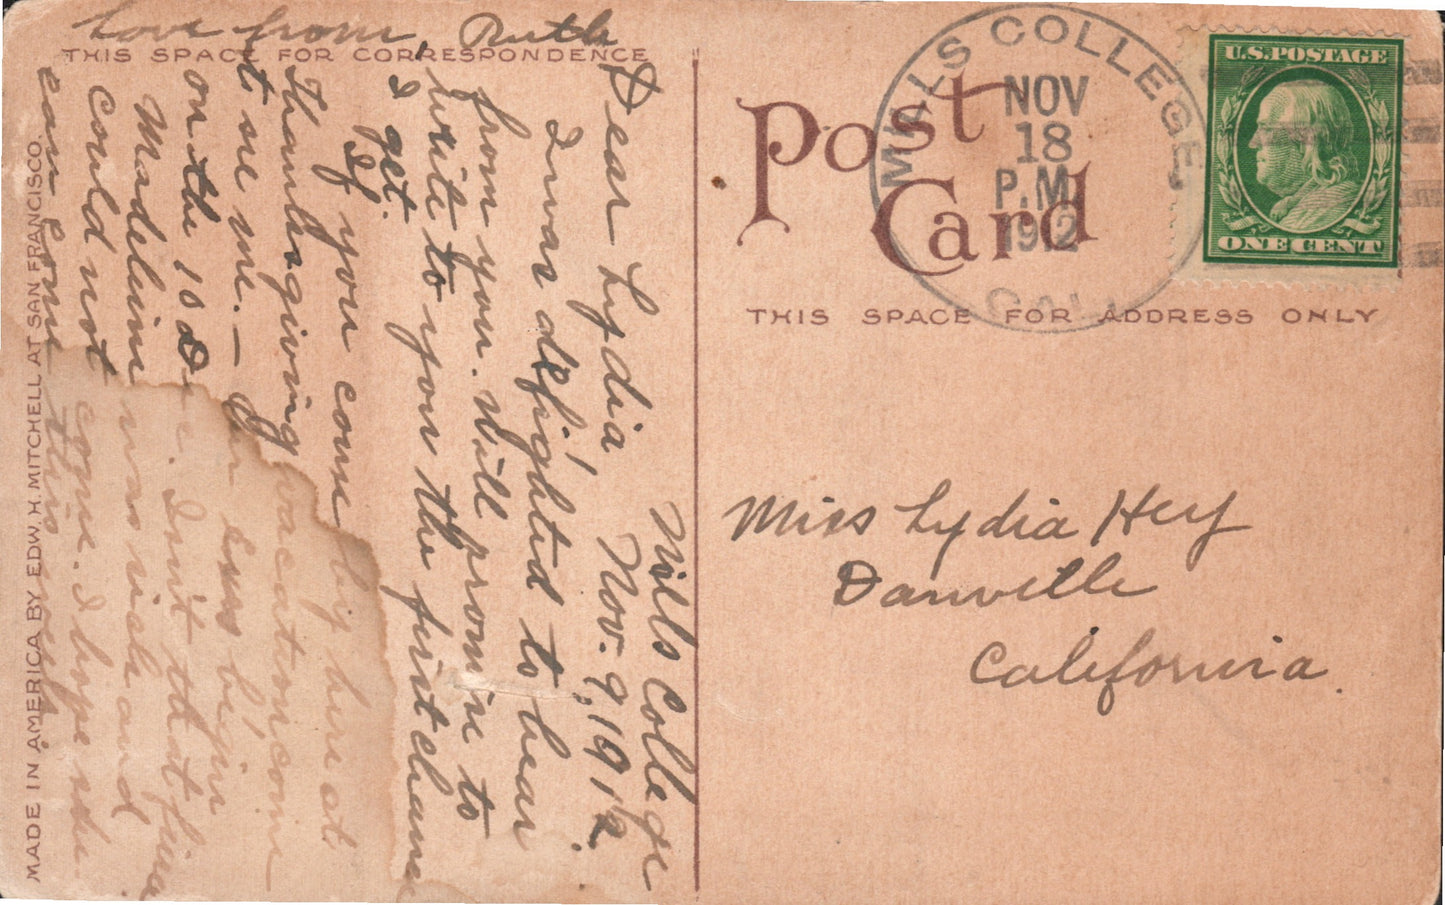 THIS SPACE FOR CORRESPONDENCE
Mills College
Nov. 9, 1912
Dear Lydia
I was delighted to hear
from you. Will promise to
write to you the first chance
I get.
If you come by here at
Thanksgiving vacation come
to see me. — Our exs begin
on the 10 Dec. Isn't that fine
Madeline was sick and
could not come. I hope she
can come this
Love from, Ruth
MADE IN AMERICA BY EDW. H. MITCHELL AT SAN FRANCISCO.
Post
Card
MILLS COLLEGE
NOV
18
P.M.
1912
CAL.
U.S. POSTAGE
ONE CENT
THIS SPACE FOR ADDRESS ONLY
Miss Lydia Hey
Danville
California.